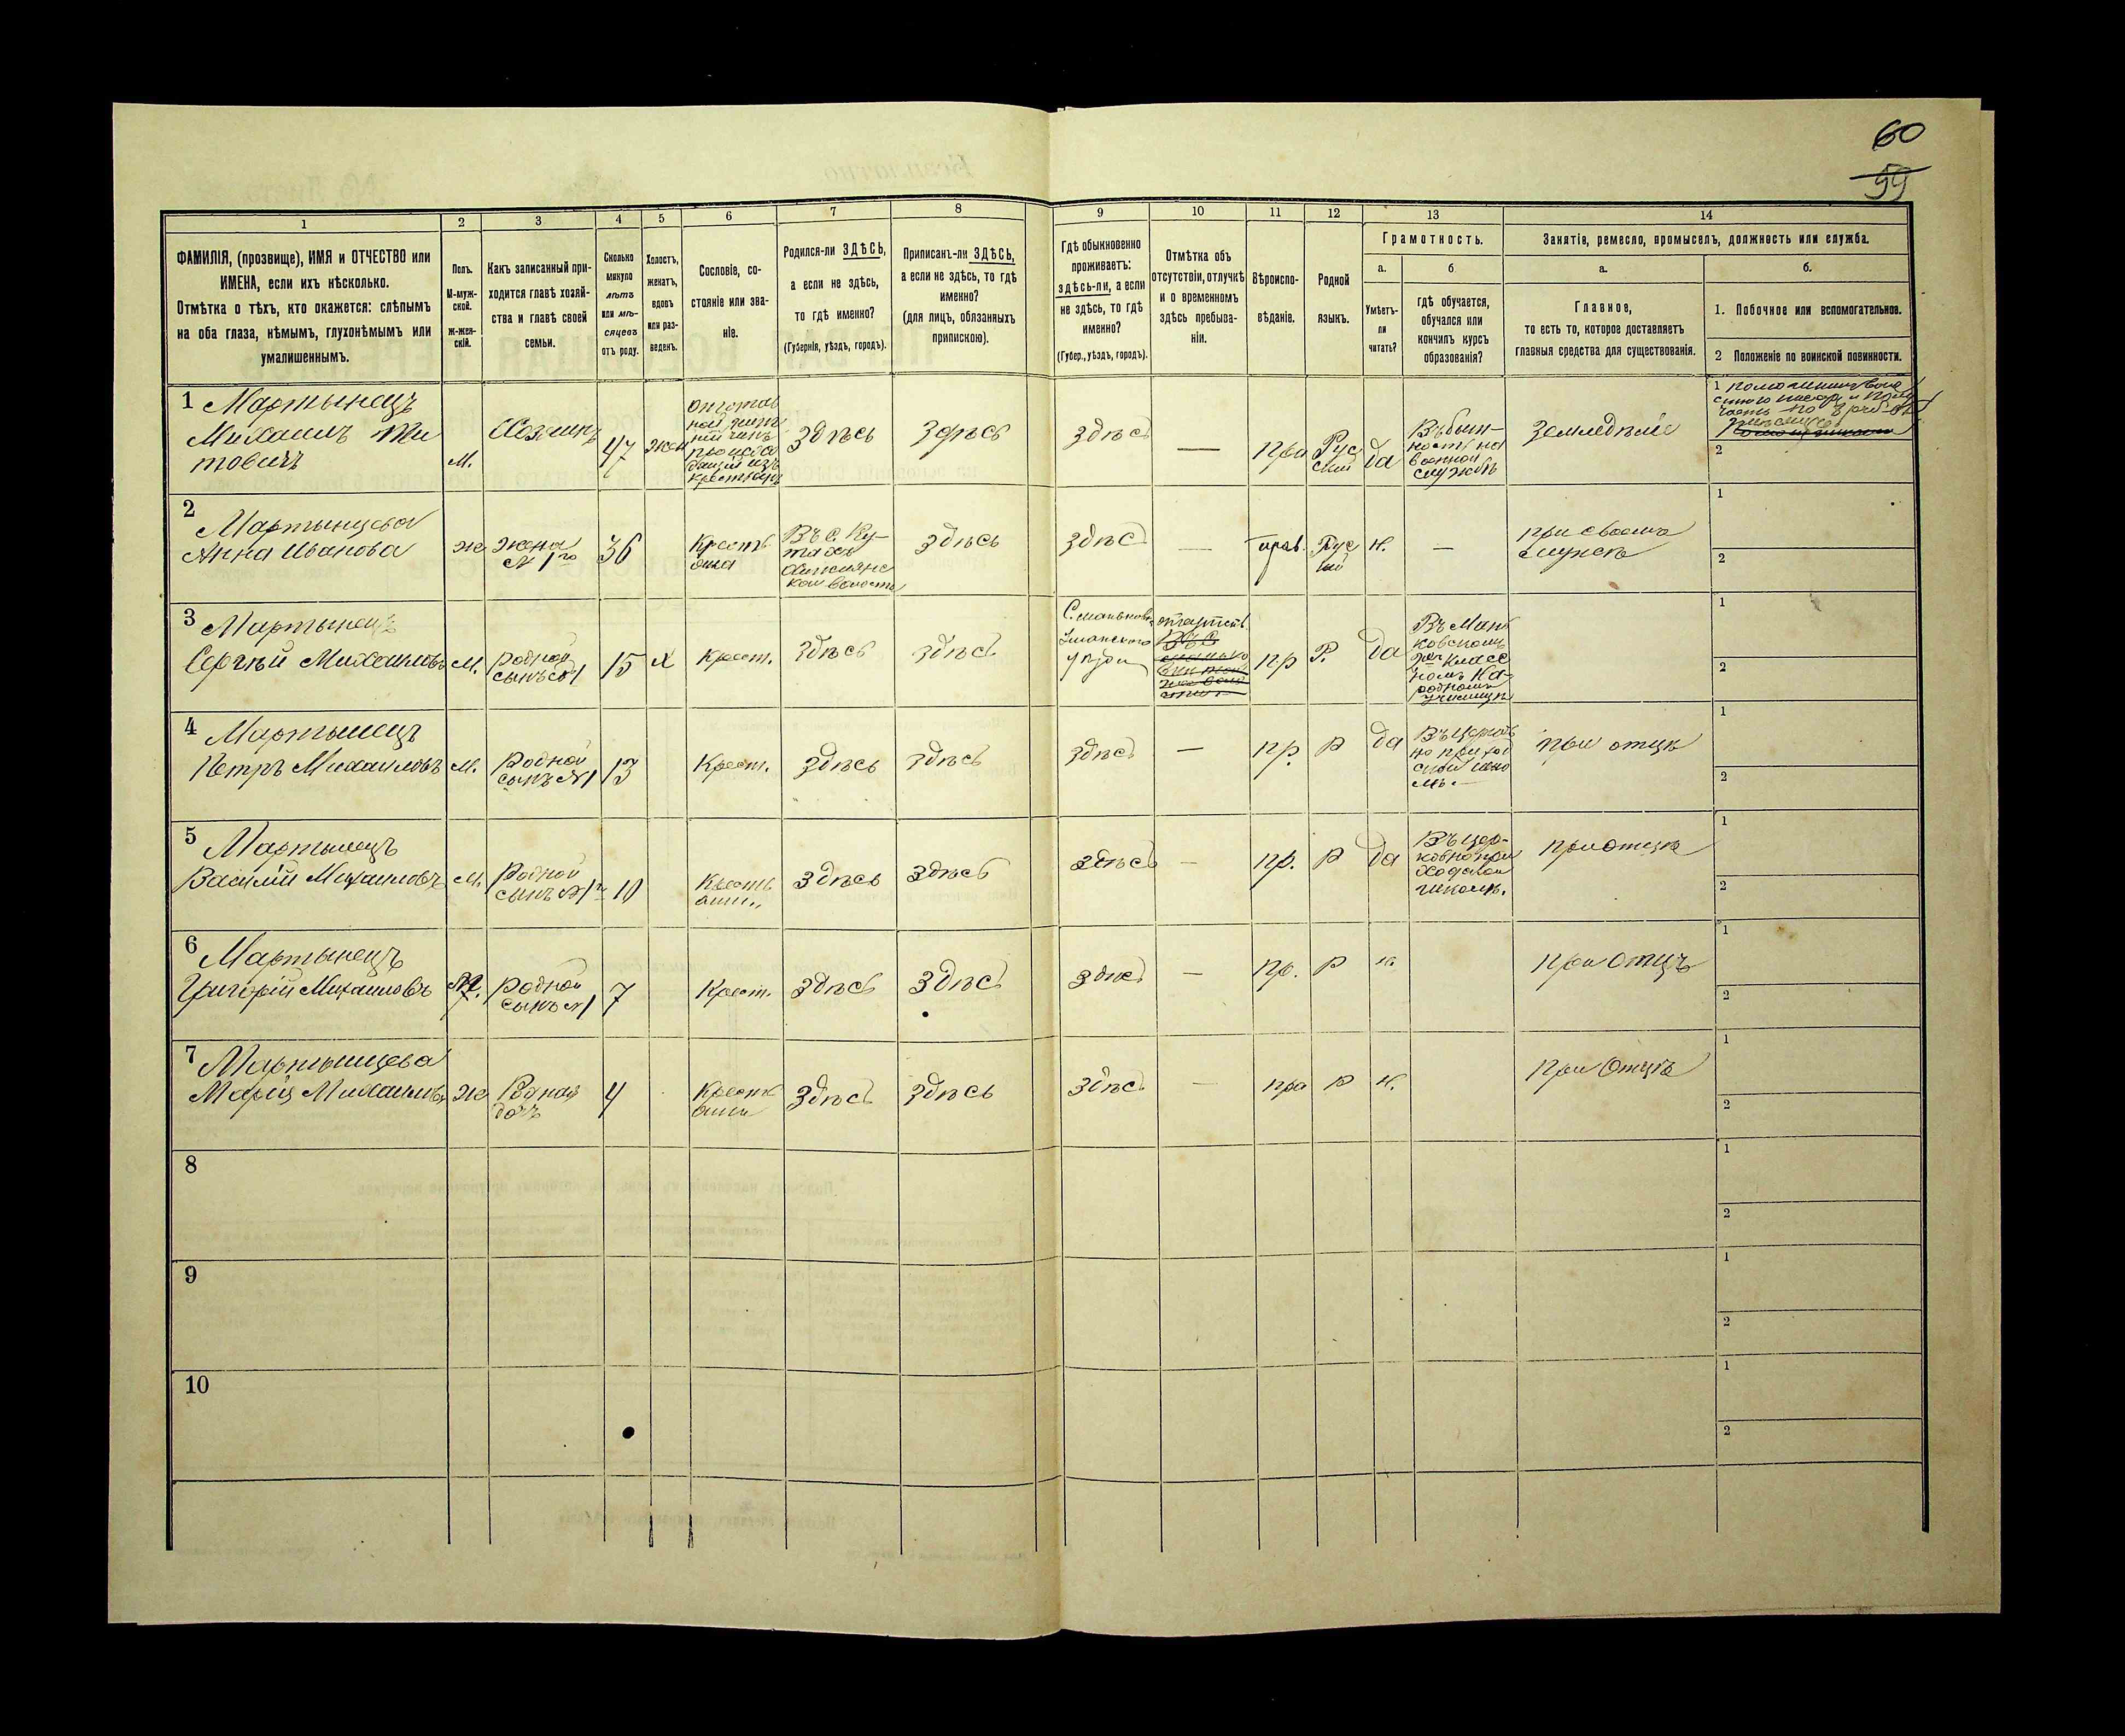 60
59
1
2
3
4
5
6
7
8
9
10
11
12
13
14
ФАМИЛІЯ, (прозвище), ИМЯ и ОТЧЕСТВО или
ИМЕНА, если ихъ нѣсколько.
Отмѣтка о тѣхъ, кто окажется: слѣпымъ
на оба глаза, нѣмымъ, глухонѣмымъ или
умалишеннымъ.
Полъ.
М-муж-
ской.
ж-жен-
скій.
Какъ записанный при-
ходится главѣ хозяй-
ства и главѣ своей
семьи.
Сколько
минуло
лѣтъ
или мѣ-
сяцевъ
отъ роду.
Холостъ,
женатъ,
вдовъ
или раз-
веденъ.
Сословіе, со-
стояніе или зва-
ніе.
Родился-ли ЗДѢСЬ,
а если не здѣсь,
то гдѣ именно?
(Губернія, уѣздъ, городъ).
Приписанъ-ли ЗДѢСЬ,
а если не здѣсь, то гдѣ
именно?
(для лицъ, обязанныхъ
припискою).
Гдѣ обыкновенно
проживаетъ:
здѣсь-ли, а если
не здѣсь, то гдѣ
именно?
(Губер., уѣздъ, городъ).
Отмѣтка объ
отсутствіи, отлучкѣ
и о временномъ
здѣсь пребыва-
ніи.
Вѣроиспо-
вѣданіе.
Родной
языкъ.
Грамотность.
а.
Умѣетъ-
ли
читать?
б.
гдѣ обучается,
обучался или
кончилъ курсъ
образованія?
Занятіе, ремесло, промыселъ, должность или служба.
а.
Главное,
то есть то, которое доставляетъ
главныя средства для существованія.
б.
1. Побочное или вспомогательное.
2 Положеніе по воинской повинности.
1 Мартынецъ
Михаилъ Ти
товичъ
М.
Хозяинъ
47
жен
Здѣсь
Здѣсь
здѣсь
—
пра
Рус
скій
да
Въ быт-
ность на
военной
службѣ
Земледѣліе
1
2
2
Мартынцева
Анна Иванова
ж
жена
N 1го
36
Крестья
Въ с. Ку-
волости
здѣсь
здѣсь
—
прав.
Рус
кій
н.
—
при своемъ
мужѣ
1
2
3
Мартынецъ
Сергѣй Михаиловъ
М.
родной
сынъ N1
15
х
Крест.
здѣсь
здѣсь
Уманского
уѣзда
пр
Р.
да
Въ Мань
ковскомъ
2хъ класс
номъ На-
родномъ
училищѣ
1
2
4
Мартынецъ
Петръ Михаиловъ
М.
Родной
сынъ N1
13
Крест.
здѣсь
здѣсь
здѣсь
—
пр.
Р
да
Въ Церков
но приход
ской шко
лѣ.
при отцѣ
1
2
5
Мартынецъ
Василій Михаиловъ
М.
Родной
сынъ N1
10
здѣсь
здѣсь
здѣсь
—
пр.
Р
да
Въ цер-
ковно при
ходской
школѣ.
при отцѣ
1
2
6
Мартынецъ
Григорій Михаиловъ
М.
родной
сынъ N1
7
Крест.
здѣсь
здѣсь
здѣсь
—
пр.
Р
н.
при отцѣ
1
2
7
Мартынцева
Марія Михаилов
ж
Родная
дочь
4
здѣсь
здѣсь
здѣсь
—
пра
Р
н.
при отцѣ
1
2
8
1
2
9
1
2
10
1
2